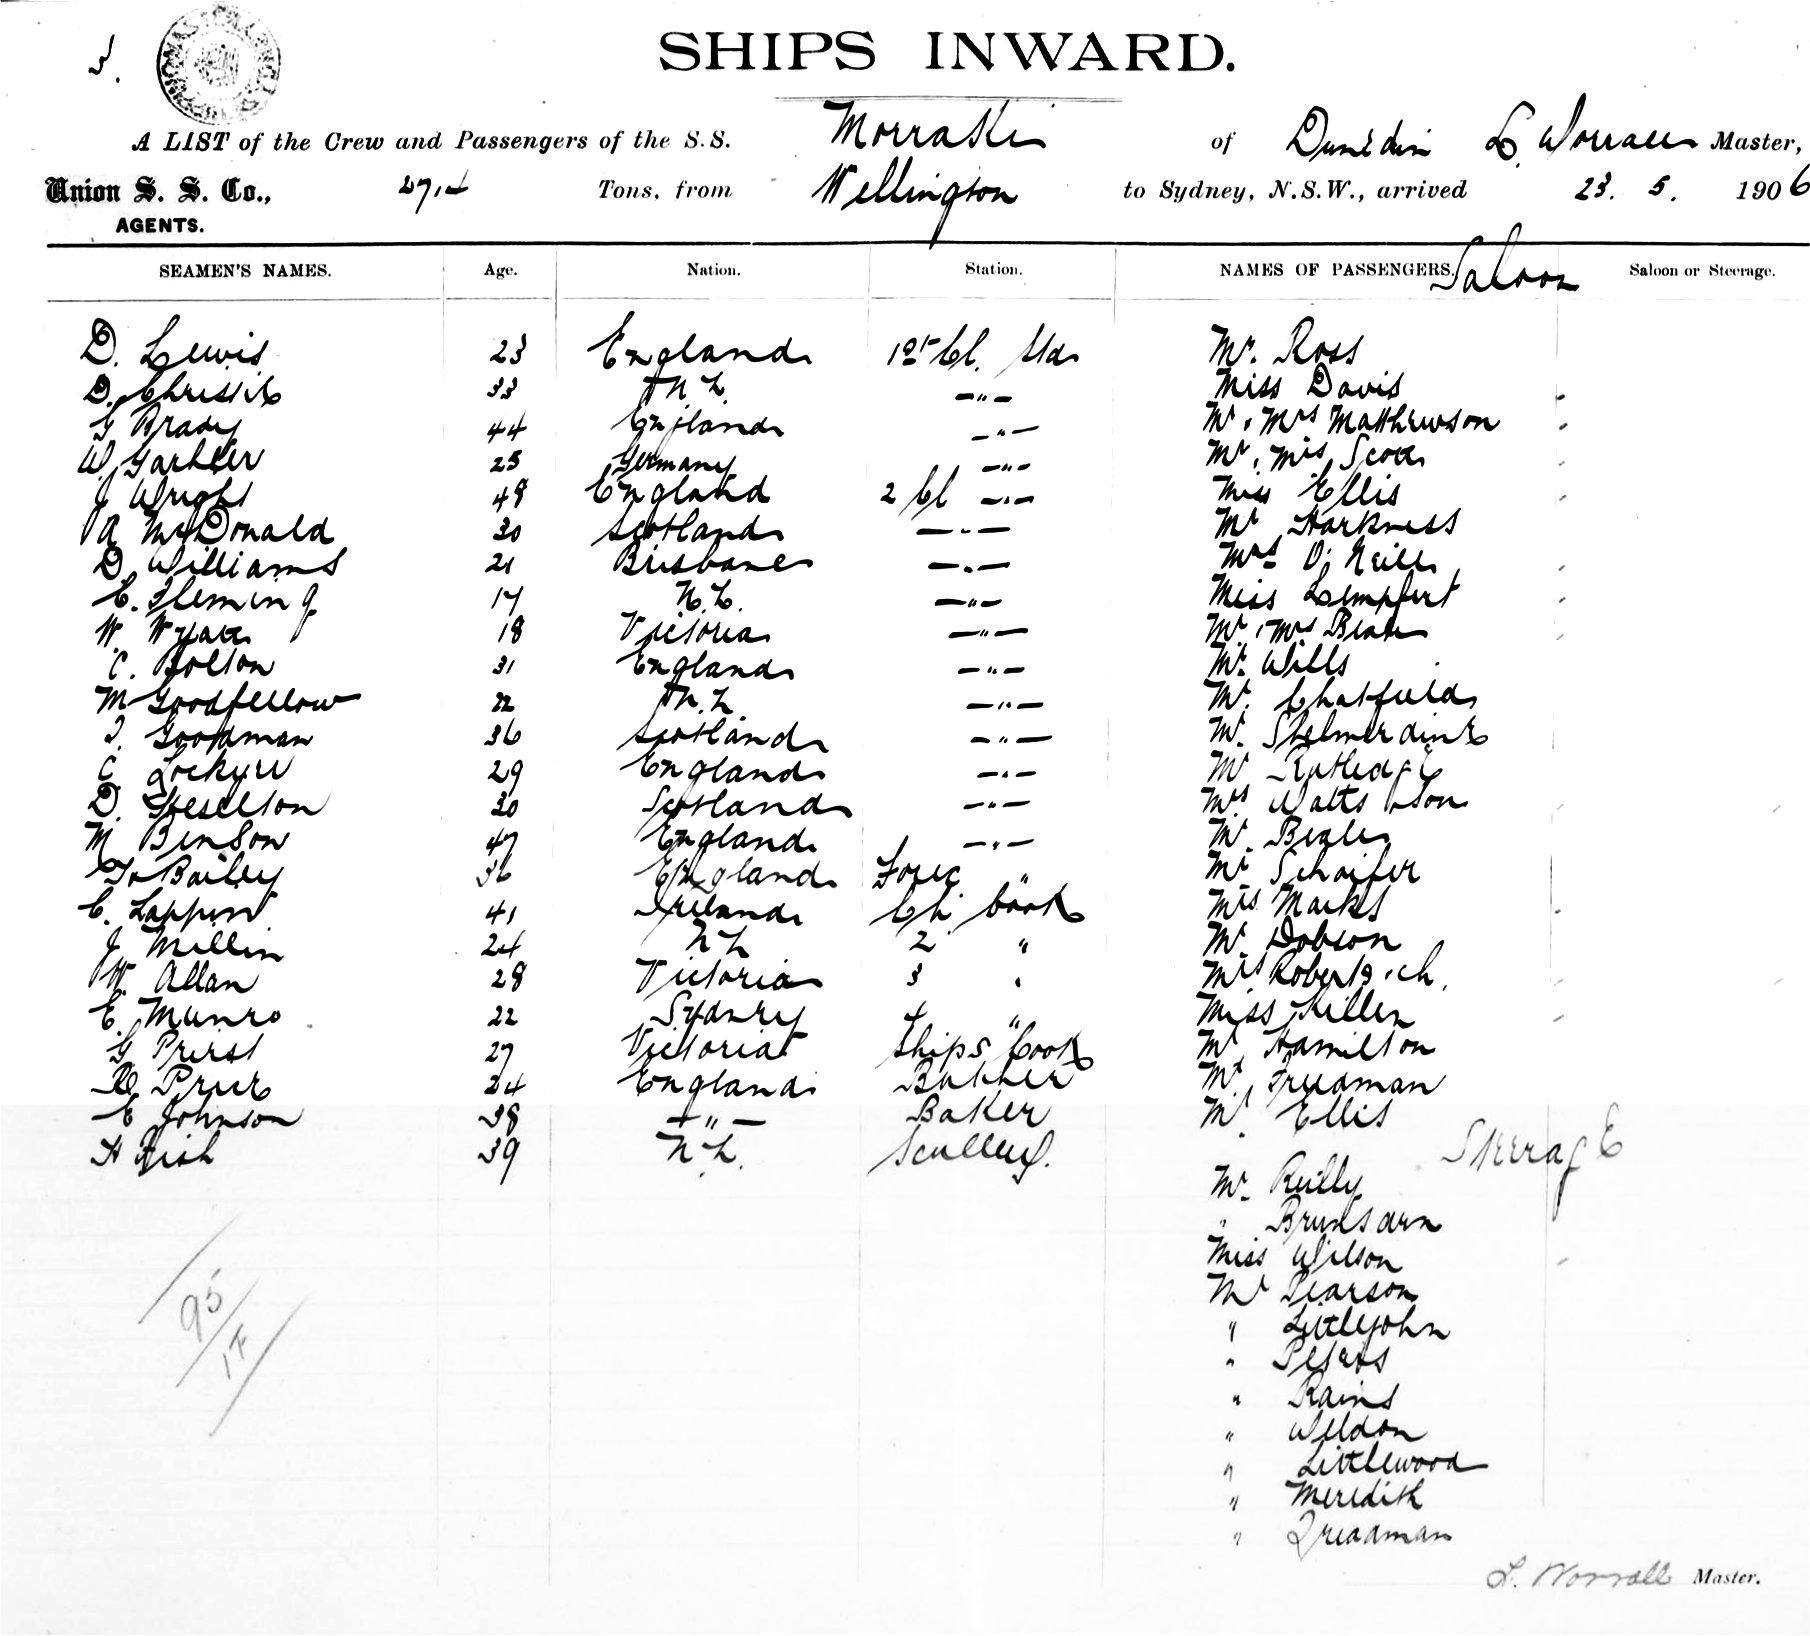 3.
SHIPS INWARD.
A LIST of the Crew and Passengers of the S.S. Morraki of Dunedin L. Worrall Master,
Union S. S. Co., Tons, from Wellington to Sydney, N.S.W., arrived 23. 5. 1906
AGENTS.
SEAMEN'S NAMES. Age. Nation. Station. NAMES OF PASSENGERS. Saloon Saloon or Steerage.
D. Lewis 23 England 1st Cl. Std Mr. Ross
D. Christie 33 N.Z. —"— Miss Davis
G Brady 44 England —"— Mr. Mrs Matthewson
W. 25 Germany —"— Mr. Mrs Scott
J Wright 48 England 2 Cl —"— Miss Ellis
A McDonald 30 Scotland —"— Mr Harkness
D Williams 21 Brisbane —"— Mrs O'Neill
C. Fleming 17 N.Z. —"— Miss Lempfert
W. Wyatt 18 Victoria —"— Mr. Mrs
C. Bolton 31 England —"— Mr. Wills
M Goodfellow 22 N.Z. —"— Mr. Chatfield
J. Goodman 36 Scotland —"— Mr. Shelmerdine
C Lockyer 29 England —"— Mr Rutledge
D. 30 Scotland —"— Mrs Watts & Son
M Benson 47 England —"— Mr.
Bailey 36 England Forec " Mr Schaifer
C. Lappin 41 Ireland Ch. Cook Mrs Marks
J Millin 24 N Z 2 " Mr Dobson
W. Allan 28 Victoria 3 " Mrs Roberts & ch.
E. Munro 22 Sydney 4 " Miss Killen
G Priest 27 Victoria Ships Cook Mr Hamilton
Prier 24 England Butcher Mr. Freedman
E Johnson 38 —"— Baker Mr. Ellis
H Fish 39 N.Z. Scullery. Steerage
Mr. Reilly
" Brunsden
Miss Wilson
Mr Pearson
" Littlejohn
" Peters
" Rains
" Weldon
" Littlewood
" Meredith
" Treadman
95
17
L. Worrall Master.